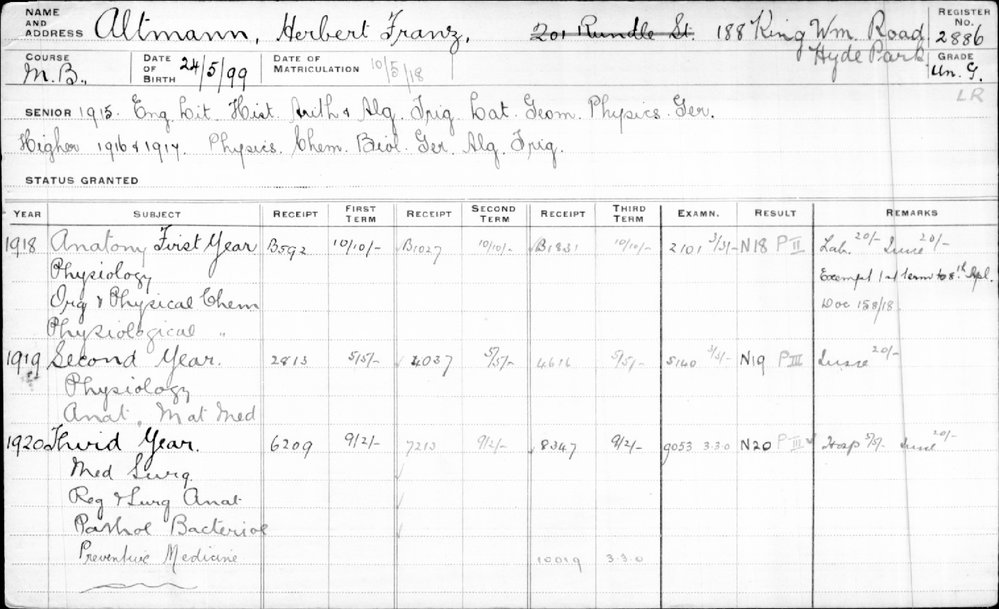 NAME AND ADDRESS Altmann, Herbert Franz, 201 Rundle St. 188 King Wm. Road Hyde Park REGISTER No. 2886
COURSE M.B., DATE OF BIRTH 24/5/99 DATE OF MATRICULATION 10/5/18 GRADE Un. G.
LR
SENIOR 1915. Eng. Lit. Hist. Arith & Alg. Trig. Lat. Geom. Physics. Ger.
Higher 1916 & 1917. Physics. Chem. Biol. Ger. Alg. Trig.
STATUS GRANTED
YEAR SUBJECT RECEIPT FIRST TERM RECEIPT SECOND TERM RECEIPT THIRD TERM EXAMN. RESULT REMARKS
1918 Anatomy First Year B592 10/10/- B1027 10/10/- B1831 10/10/- 2101 3/3/- N18 P II Lab. 20/- 20/-
Physiology Exempt 1st term to 8th Apl.
Org & Physical Chem Doc 158/18.
Physiological "
1919 Second Year. 2813 5/5/- 4037 5/5/- 4616 5/5/- 5140 3/3/- N19 P III 20/-
Physiology
Anat, Mat Med
1920 Third Year. 6209 9/2/- 7213 9/2/- 8347 9/2/- 9053 3.3.0 N20 P III Hosp 5/5/- 20/-
Med Surg.
Reg & Surg Anat
Pathol Bacteriol
Preventive Medicine 10019 3.3.0